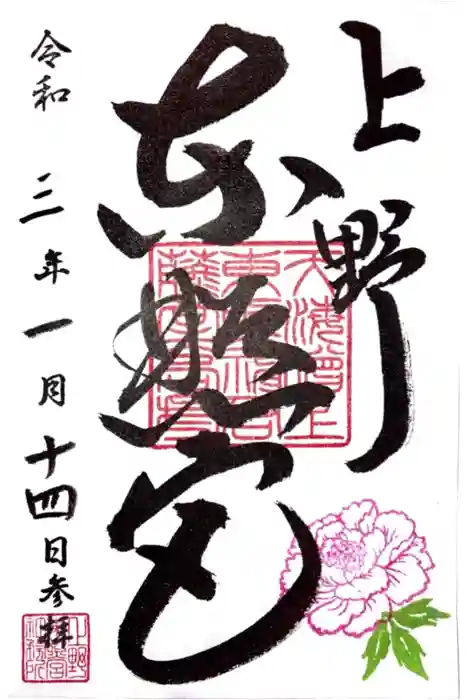 上野
東照宮
令和三年一月十四日参拝